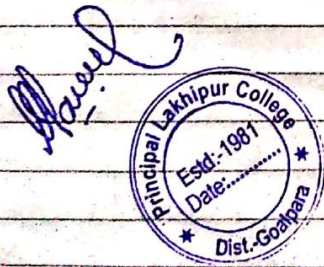 Principal Lakhipur College
Estd:-1981
Date:..............
* Dist.-Goalpara *